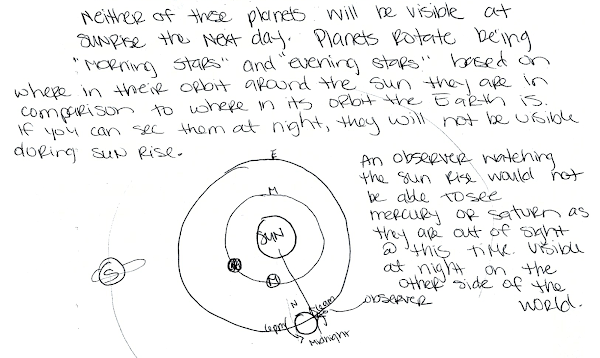 Neither of these planets will be visible at
sunrise the next day. Planets rotate being
"morning stars" and "evening stars" based on
where in their orbit around the sun they are in
comparison to where in its orbit the Earth is.
If you can see them at night, they will not be visible
during sun rise.
An observer watching
the sun rise would not
be able to see
mercury or saturn as
they are out of sight
@ this time. Visible
at night on the
other side of the
world.
E
M
SUN
S
M
N
6am
6pm
observer
Midnight